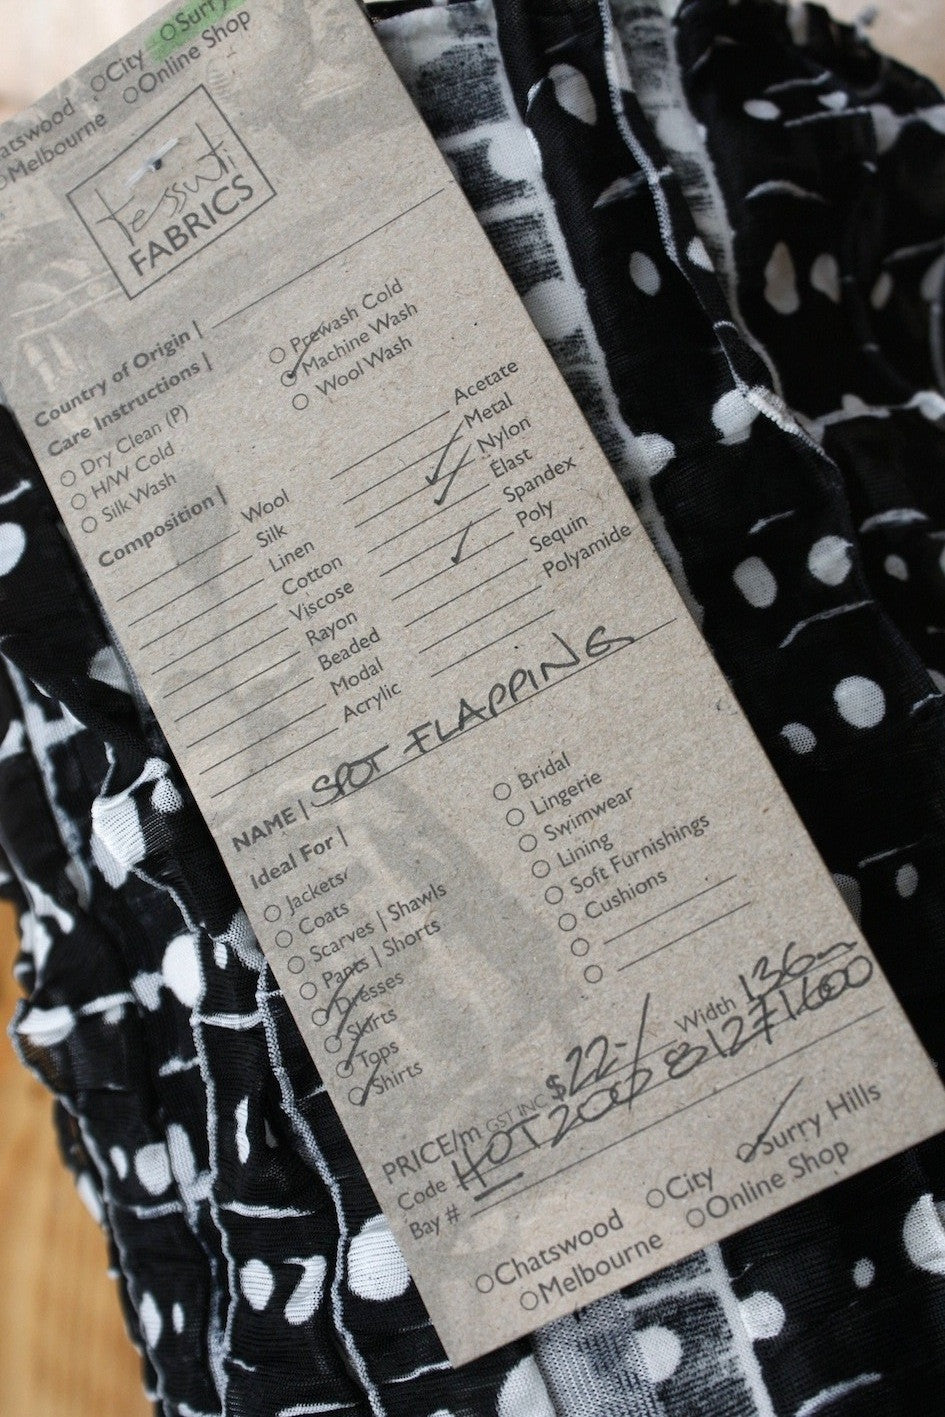 City Surry
Online Shop
Melbourne
tessuti
FABRICS
Country of Origin |
Care Instructions |
Dry Clean (P)
H/W Cold
Silk Wash
Prewash Cold
Machine Wash
Wool Wash
Composition |
Wool
Silk
Linen
Cotton
Viscose
Rayon
Beaded
Modal
Acrylic
Acetate
Metal
Nylon
Elast
Spandex
Poly
Sequin
Polyamide
NAME | SPOT FLAPPING
Ideal For |
Jackets
Coats
Scarves | Shawls
Pants | Shorts
Dresses
Skirts
Tops
Shirts
Bridal
Lingerie
Swimwear
Lining
Soft Furnishings
Cushions
PRICE/m GST INC $22.-/ Width 136
Code HOT 200
Bay #
Chatswood City Surry Hills
Melbourne Online Shop